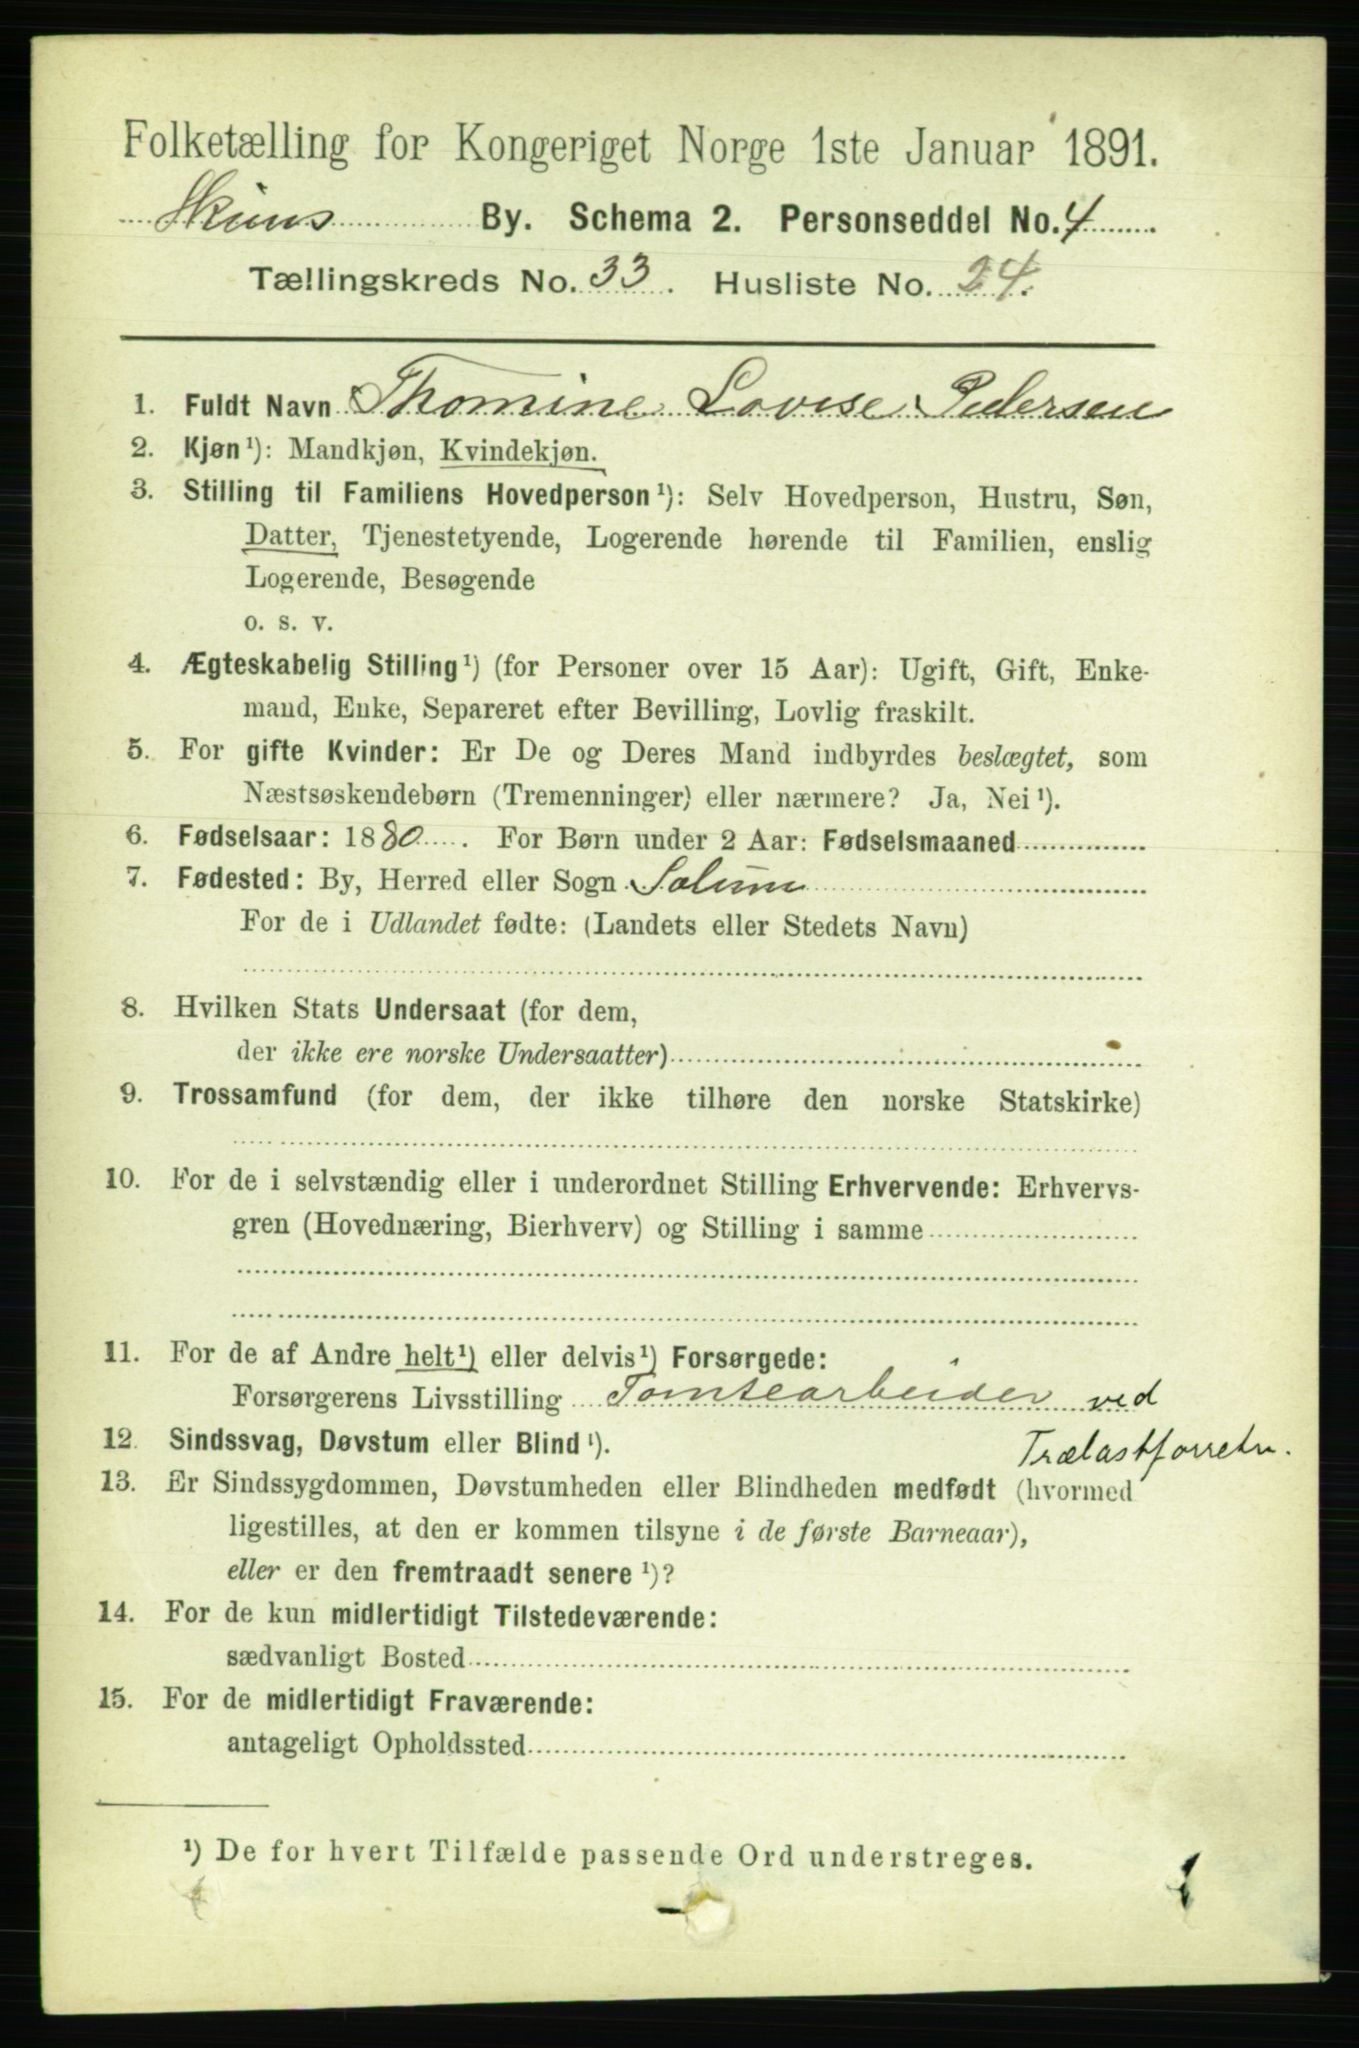 Folketælling for Kongeriget Norge 1ste Januar 1891.
Skiens By. Schema 2. Personseddel No. 4
Tællingskreds No. 33. Husliste No. 24.
1. Fuldt Navn Thomine Lovise Pedersen
2. Kjøn¹): Mandkjøn, Kvindekjøn.
3. Stilling til Familiens Hovedperson¹): Selv Hovedperson, Hustru, Søn,
Datter, Tjenestetyende, Logerende hørende til Familien, enslig
Logerende, Besøgende
o. s. v.
4. Ægteskabelig Stilling¹) (for Personer over 15 Aar): Ugift, Gift, Enke-
mand, Enke, Separeret efter Bevilling, Lovlig fraskilt.
5. For gifte Kvinder: Er De og Deres Mand indbyrdes beslægtet, som
Næstsøskendebørn (Tremenninger) eller nærmere? Ja, Nei¹).
6. Fødselsaar: 1880. For Børn under 2 Aar: Fødselsmaaned
7. Fødested: By, Herred eller Sogn Solum
For de i Udlandet fødte: (Landets eller Stedets Navn)
8. Hvilken Stats Undersaat (for dem,
der ikke ere norske Undersaatter)
9. Trossamfund (for dem, der ikke tilhøre den norske Statskirke)
10. For de i selvstændig eller i underordnet Stilling Erhvervende: Erhvervs-
gren (Hovednæring, Bierhverv) og Stilling i samme
11. For de af Andre helt¹) eller delvis¹) Forsørgede:
Forsørgerens Livsstilling Tomtearbeider ved
Trælastforretn.
12. Sindssvag, Døvstum eller Blind¹).
13. Er Sindssygdommen, Døvstumheden eller Blindheden medfødt (hvormed
ligestilles, at den er kommen tilsyne i de første Barneaar),
eller er den fremtraadt senere¹)?
14. For de kun midlertidigt Tilstedeværende:
sædvanligt Bosted
15. For de midlertidigt Fraværende:
antageligt Opholdssted
¹) De for hvert Tilfælde passende Ord understreges.